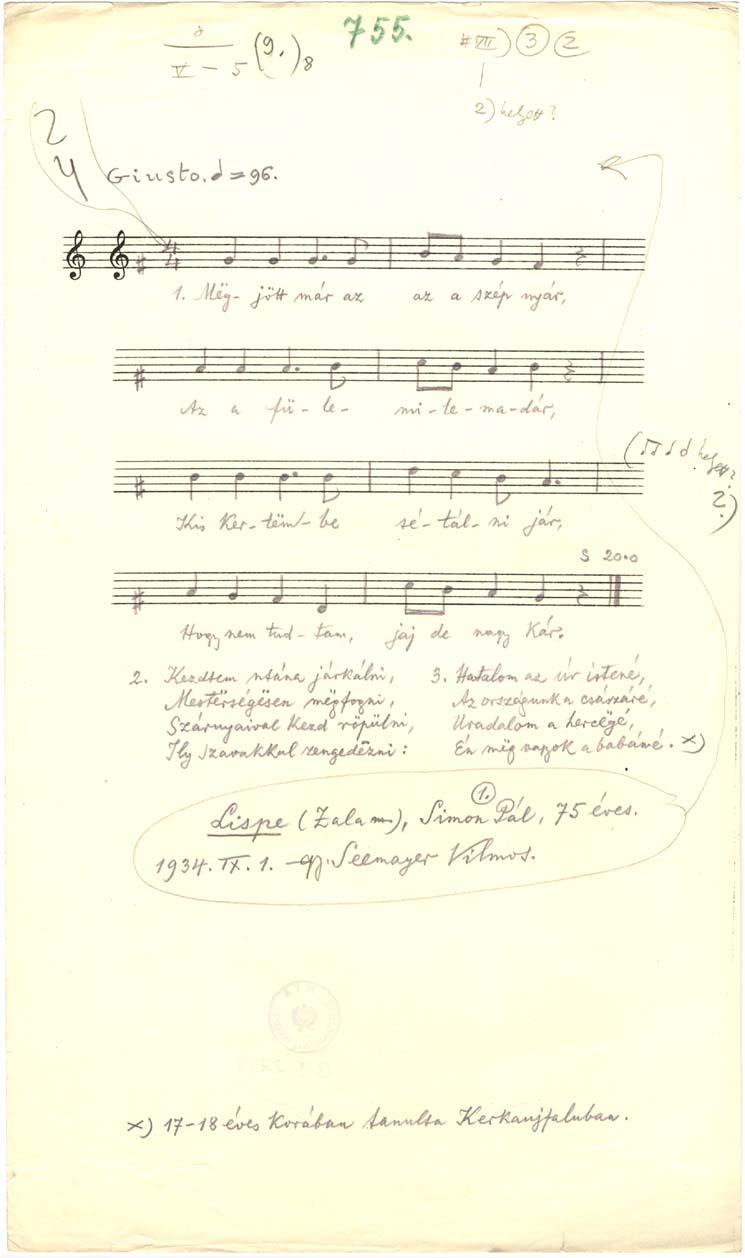 755.
V – 5 (9.)8
#VII) 3 2
2) helyett?
2
4
Giusto. = 96.
4
4
1. Mëg- jött már az az a szép nyár,
Az a fü - le - mi - le - ma - dár,
( helyett?
?)
Kis Ker - tëm - be sé - tál - ni jár,
S 20.0
Hogy nem tud - tam, jaj de nagy Kár.
2. Kezdtem utána járkálni,
Mestërségësen mëgfogni,
Szárnyaival kezd röpülni,
Ily szavakkal zengedëzni:
3. Hatalom az úr istené,
Az országunk a császáré,
Uradalom a hercëgé,
Én mëg vagyok a babámé. x)
1.
Lispe (Zala m), Simon Pál, 75 éves.
1934. IX. 1. gy. Seemayer Vilmos.
x) 17-18 éves korában tanulta Kerkaujfaluban.